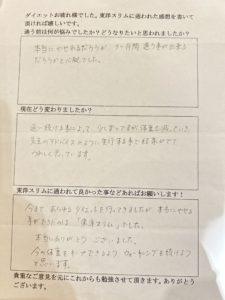 ダイエットお疲れ様でした。東洋スリムに通われた感想を書いて
頂ければ嬉しいです。
通う前は何が悩みでしたか？どうなりたいと思われましたか？
本当にやせれるだろうか、
だろうかと心配でした。
現在どう変わりましたか？
通い続ける事によって、少しずつですが体重も減っていき
先生のアドバイスのように実行する事で結果がでて
うれしく思っています。
東洋スリムに通われて良かった事などあればお願いします！
今まで あらゆる ダイエットを行ってきましたが 本当にやせる
事ができたのは 「東洋スリム」でした。
本当にありがとう ございました。
今の体重をキープできるよう ウォーキングも続けよう
と思います。
貴重なご意見を元にこれからも勉強させて頂きます。ありがとう
ございます。